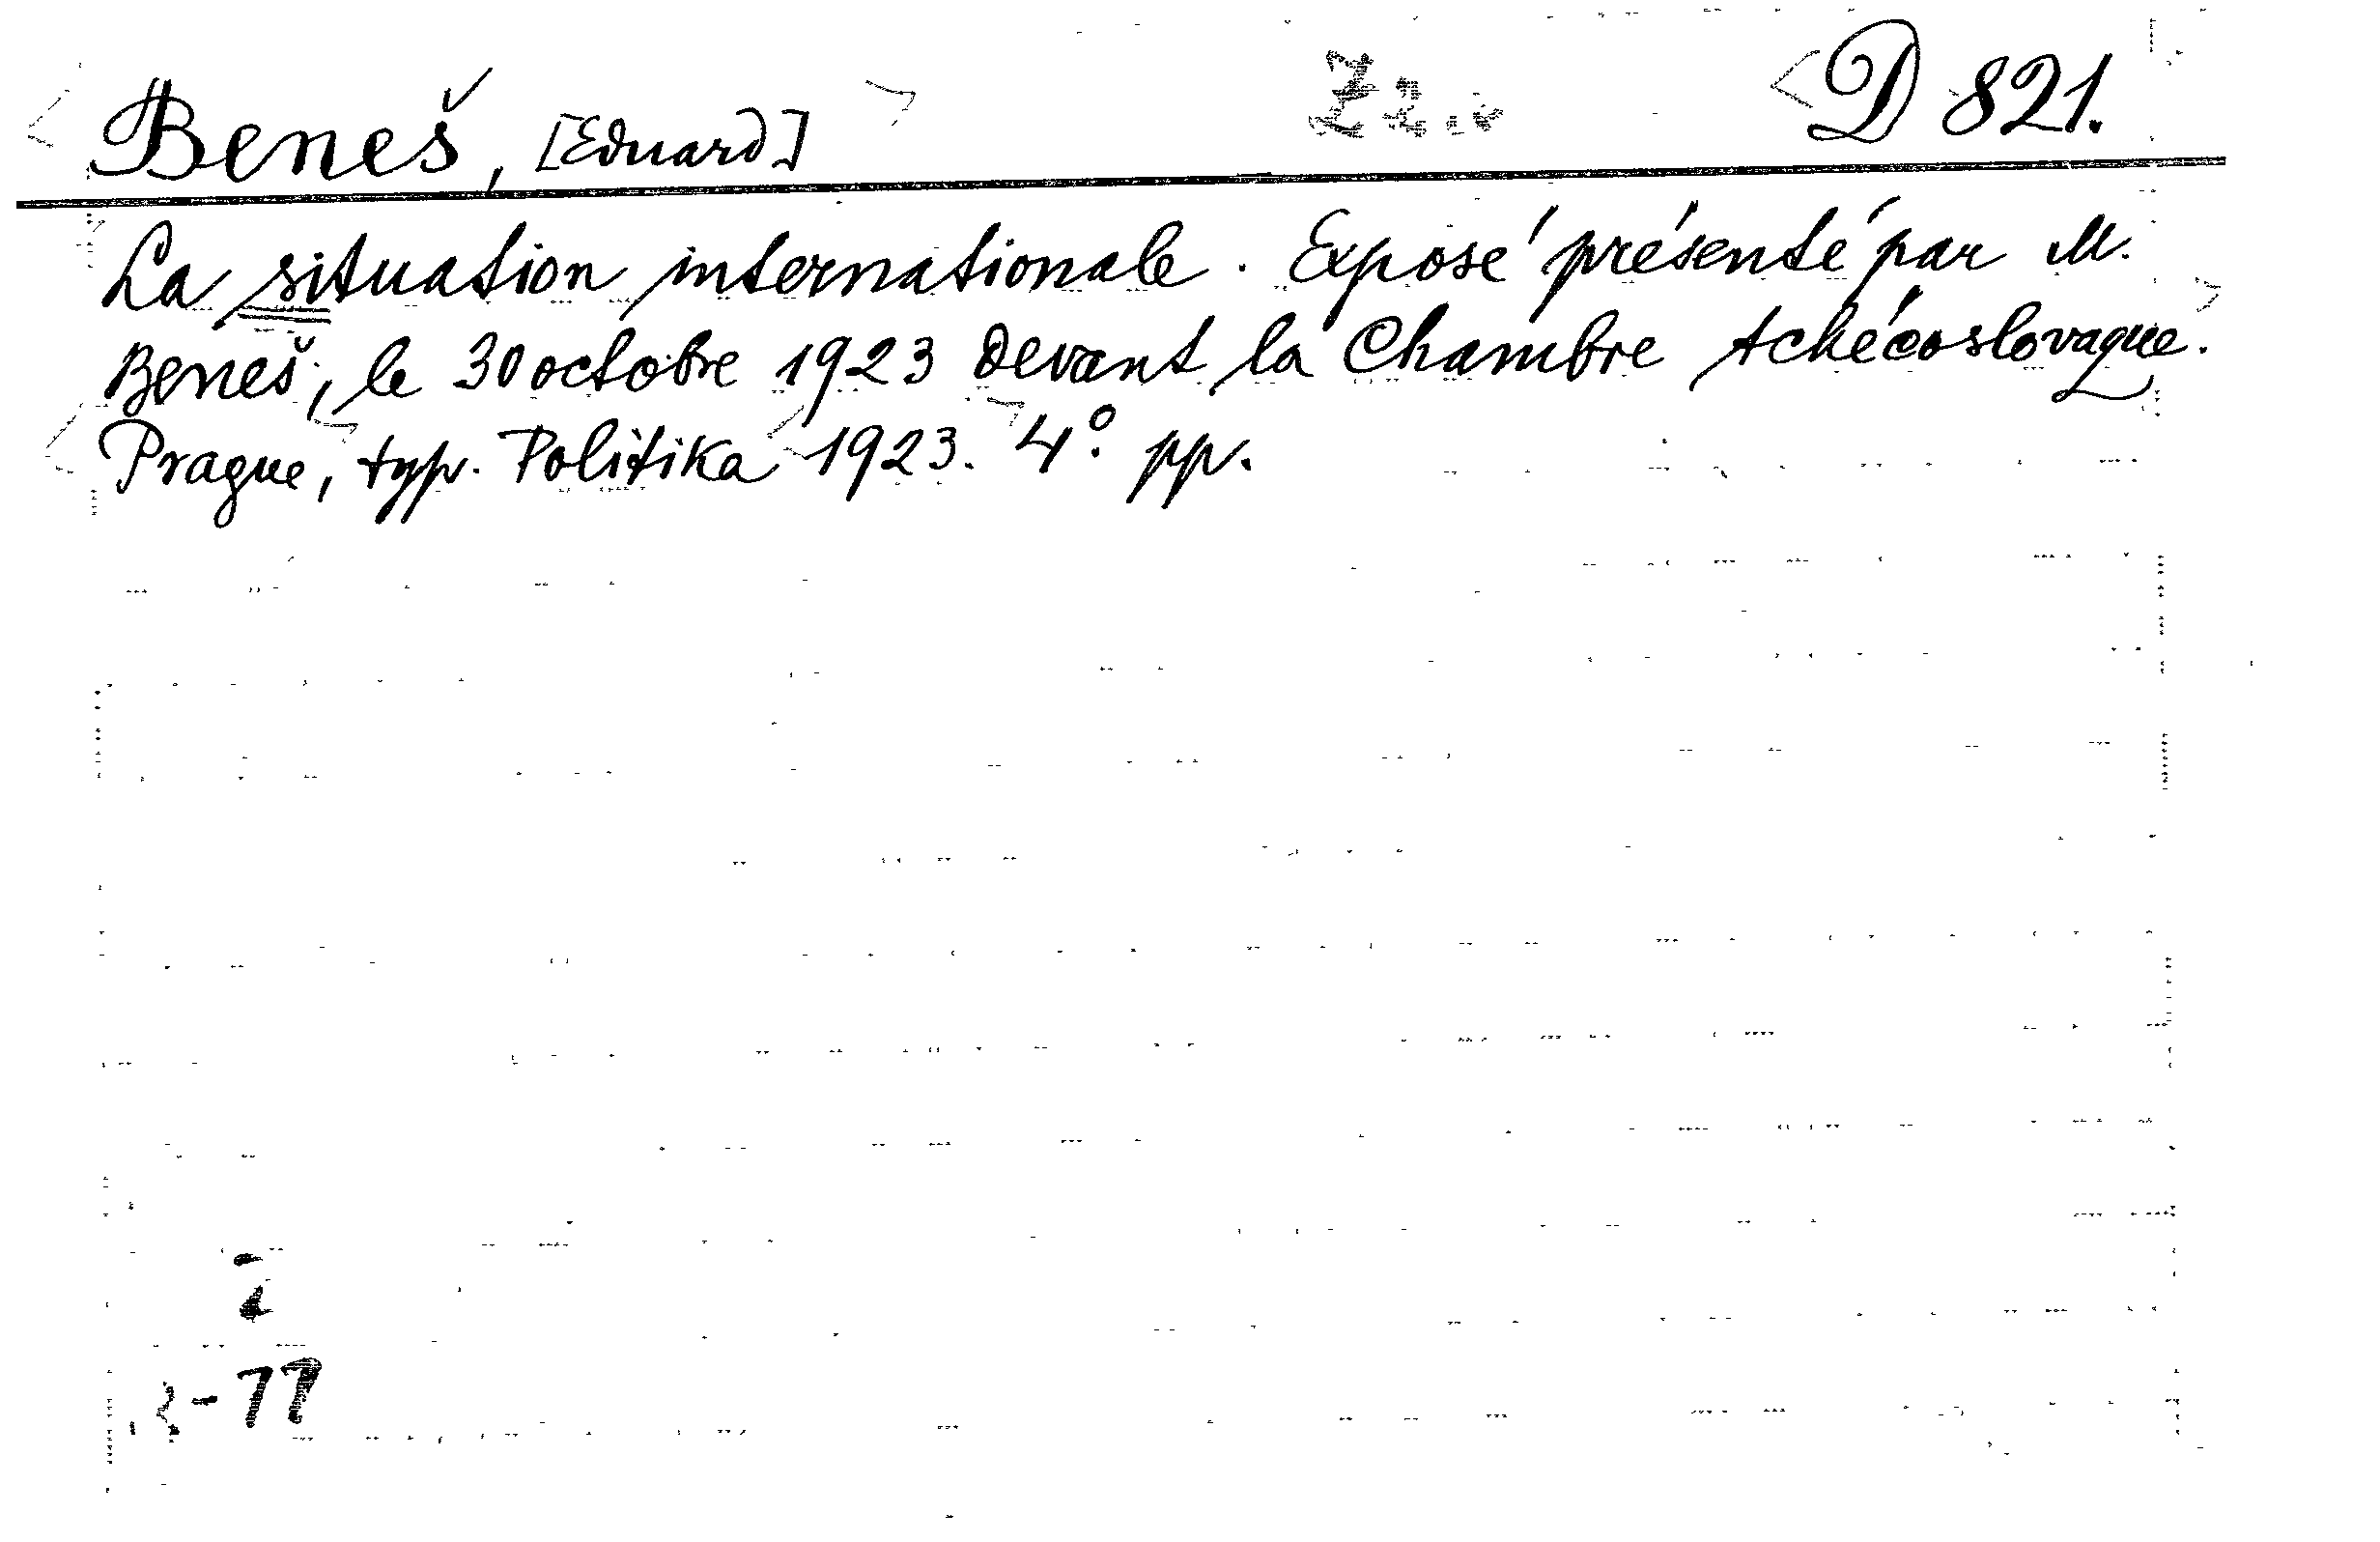 Beneš, [Eduard] D 821.
La situation internationale. Exposé présenté par M.
Beneš, le 30 octobre 1923 devant la Chambre tchécoslovaque.
Prague, typ. Politika 1923. 4° pp.